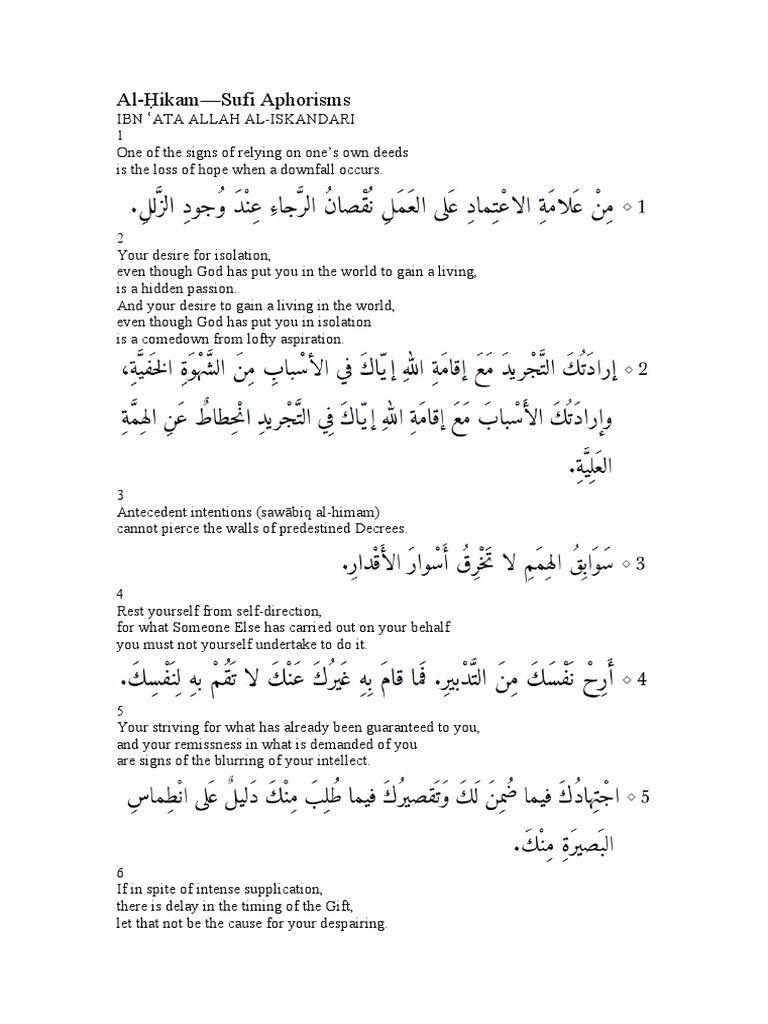 Al-Ḥikam—Sufi Aphorisms
IBN ʿATA ALLAH AL-ISKANDARI
1
One of the signs of relying on one’s own deeds
is the loss of hope when a downfall occurs.
1 ◇ مِنْ عَلامَةِ الاعْتِمادِ عَلى العَمَلِ نُقْصانُ الرَّجاءِ عِنْدَ وُجودِ الزَّللِ.
2
Your desire for isolation,
even though God has put you in the world to gain a living,
is a hidden passion.
And your desire to gain a living in the world,
even though God has put you in isolation
is a comedown from lofty aspiration.
2 ◇ إرادَتُكَ التَّجْريدَ مَعَ إقامَةِ اللهِ إيّاكَ في الأسْبابِ مِنَ الشَّهْوَةِ الخَفيَّةِ،
وإرادَتُكَ الأَسْبابَ مَعَ إقامَةِ اللهِ إيّاكَ فِي التَّجْريدِ انْحِطاطٌ عَنِ الهِمَّةِ
العَلِيَّةِ.
3
Antecedent intentions (sawābiq al-himam)
cannot pierce the walls of predestined Decrees.
3 ◇ سَوَابِقُ الهِمَمِ لا تَخْرِقُ أَسْوارَ الأَقْدارِ.
4
Rest yourself from self-direction,
for what Someone Else has carried out on your behalf
you must not yourself undertake to do it.
4 ◇ أَرِحْ نَفْسَكَ مِنَ التَّدْبيرِ. فَما قامَ بِهِ غَيرُكَ عَنْكَ لا تَقُمْ بهِ لِنَفْسِكَ.
5
Your striving for what has already been guaranteed to you,
and your remissness in what is demanded of you
are signs of the blurring of your intellect.
5 ◇ اجْتِهادُكَ فيما ضُمِنَ لَكَ وَتَقصيرُكَ فيما طُلِبَ مِنْكَ دَليلٌ عَلى انْطِماسِ
البَصيرَةِ مِنْكَ.
6
If in spite of intense supplication,
there is delay in the timing of the Gift,
let that not be the cause for your despairing.